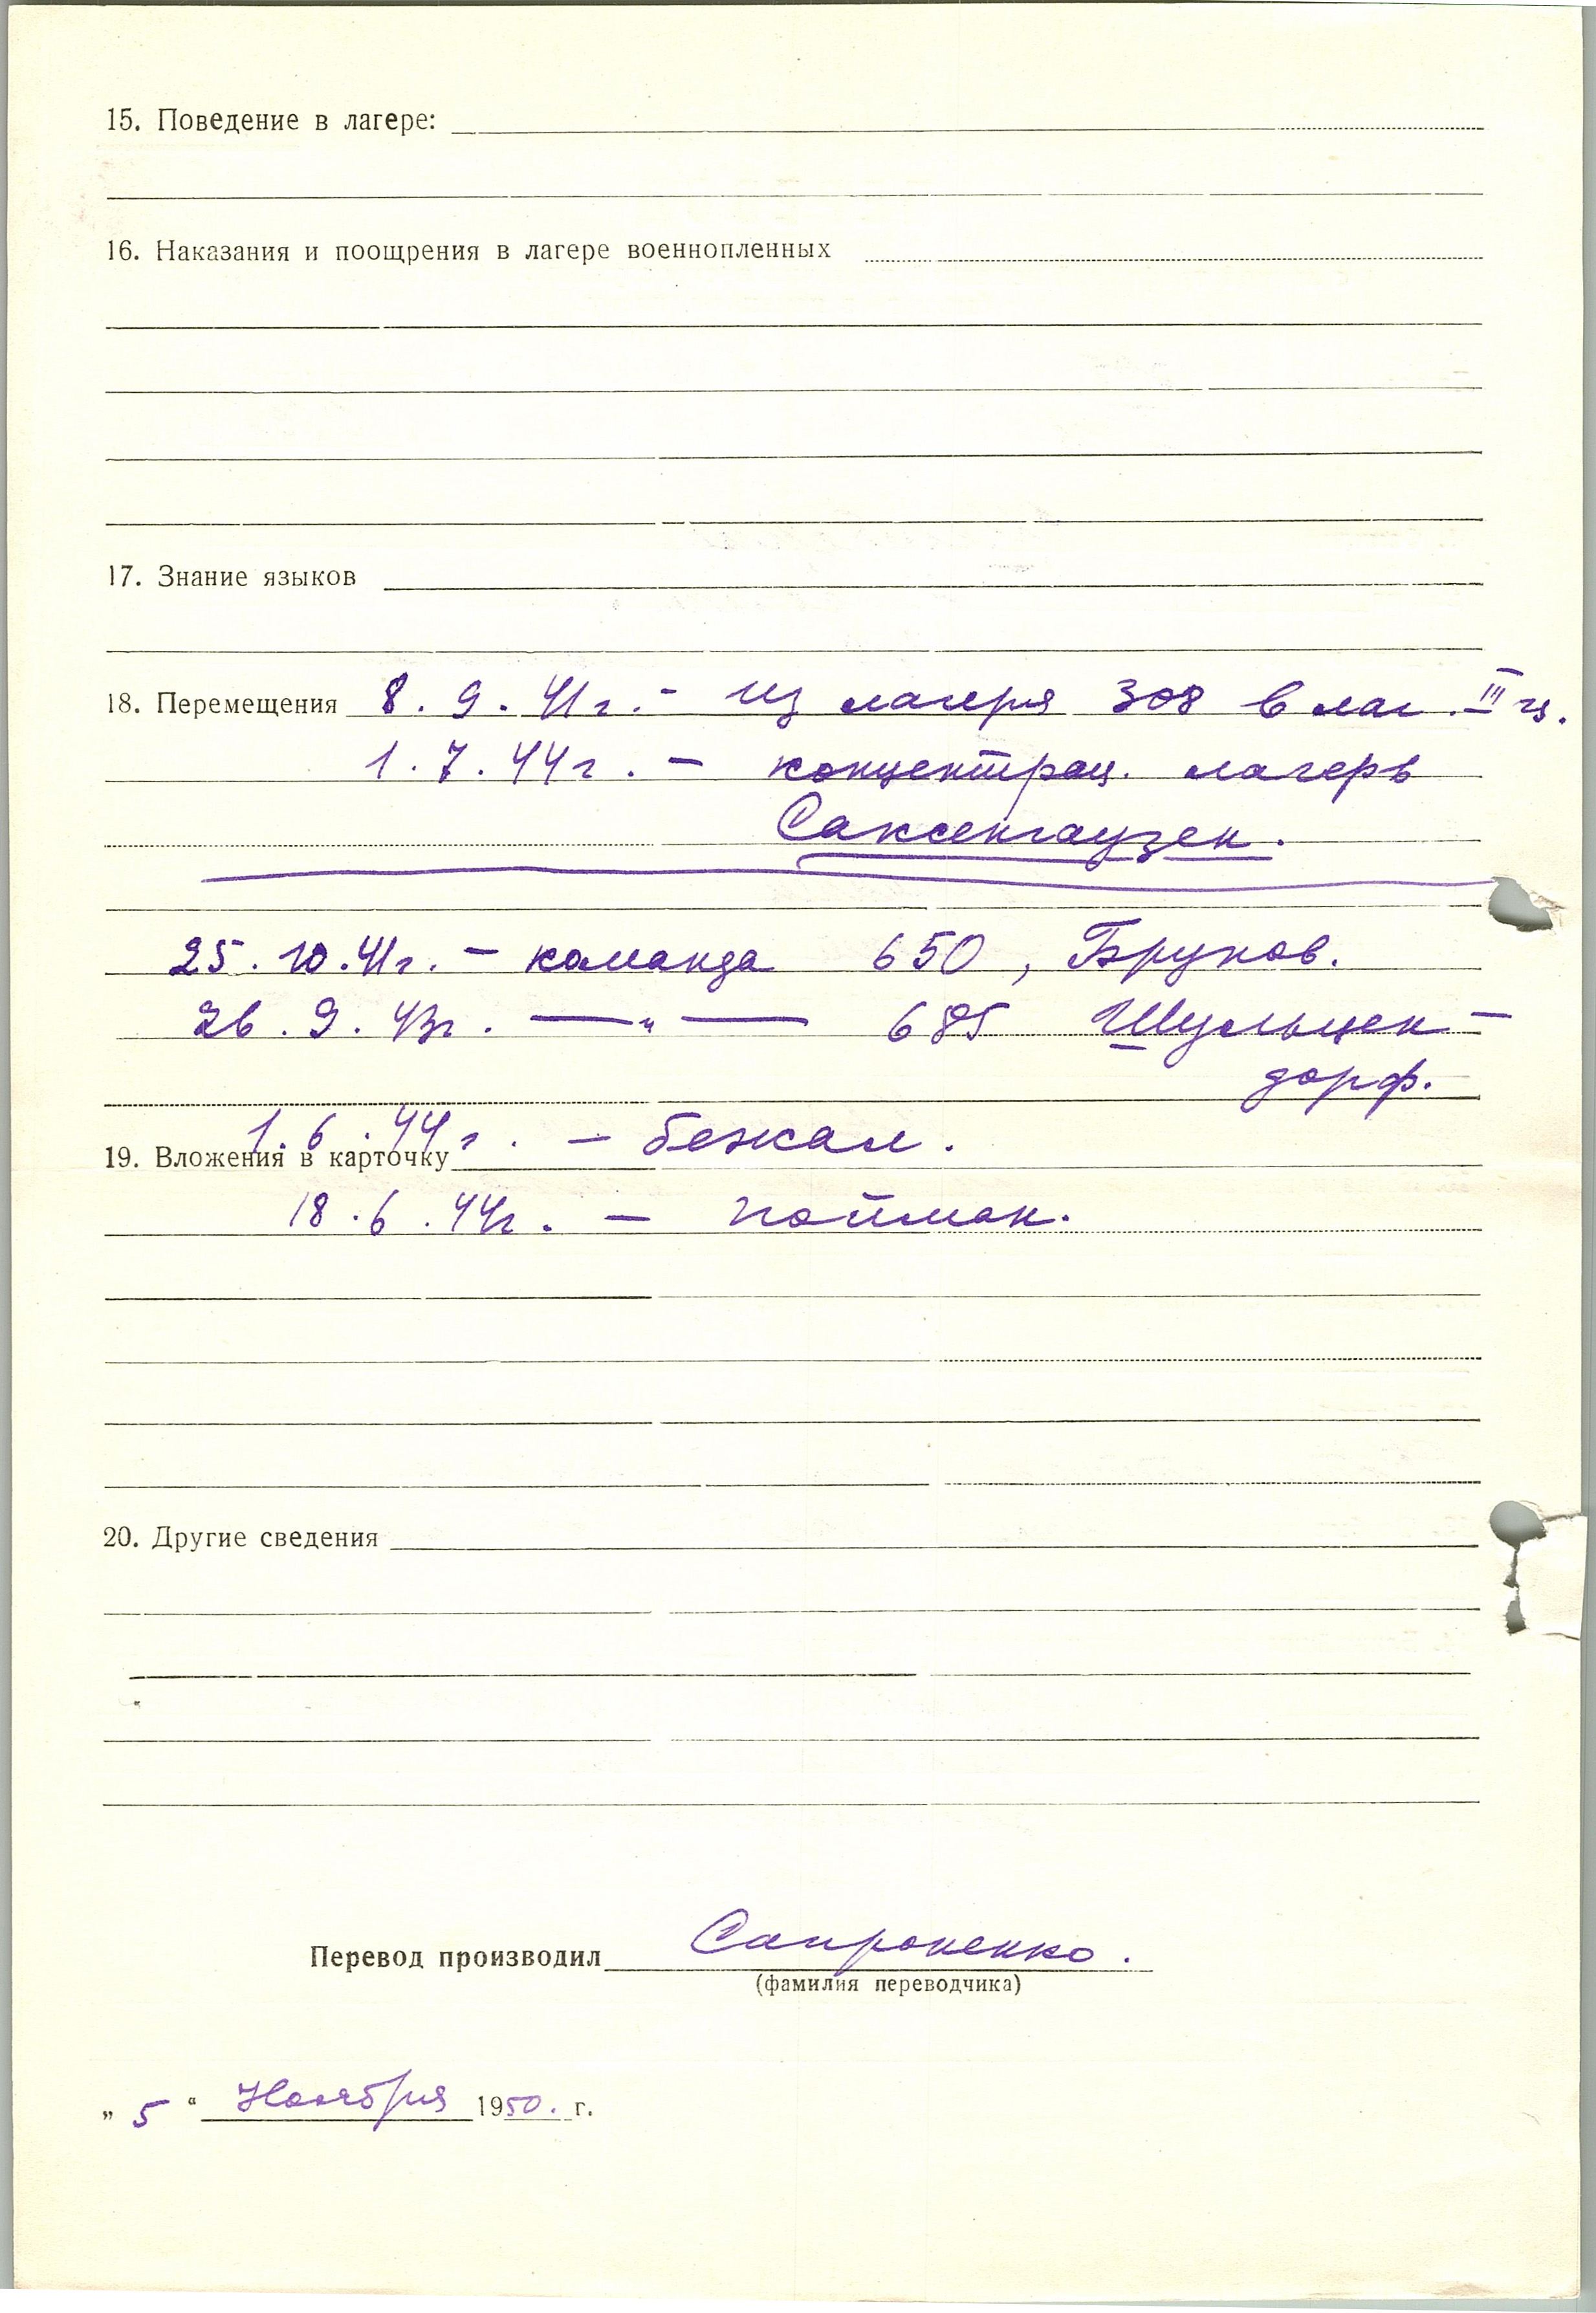 15. Поведение в лагере:
16. Наказания и поощрения в лагере военнопленных
17. Знание языков
18. Перемещения 8.9.41г. - из лагеря 308 в лаг. III ц.
1.7.44г. - концентрац. лагерь
Саксенгаузен.
25.10.41г. - команда 650, Бруков.
26.9.43г. — " — 685 Шульцен-
дорф.
1.6.44г. - бежал.
19. Вложения в карточку
18.6.44г. - пойман.
20. Другие сведения
Перевод производил Сапроненко.
(фамилия переводчика)
„ 5 “ Ноября 1950. г.